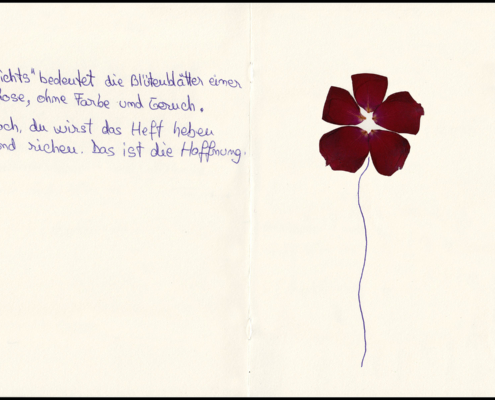 ichts" bedeutet die Blütenblätter einer
ose, ohne Farbe und Geruch.
och, du wirst das Heft heben
nd richen. Das ist die Hoffnung.